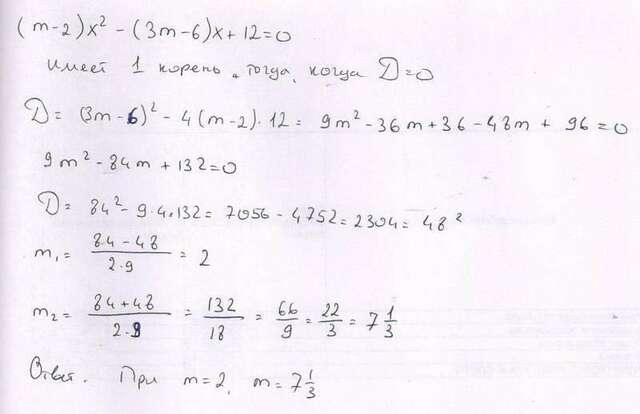 (m-2)x² - (3m-6)x + 12 = 0
имеет 1 корень, тогда, когда D=0
D = (3m-6)² - 4(m-2)·12 = 9m² - 36m + 36 - 48m + 96 = 0
9m² - 84m + 132 = 0
D = 84² - 9·4·132 = 7056 - 4752 = 2304 = 48²
m₁ = (84-48)/(2·9) = 2
m₂ = (84+48)/(2·9) = 132/18 = 66/9 = 22/3 = 7 1/3
Ответ. При m=2, m=7 1/3